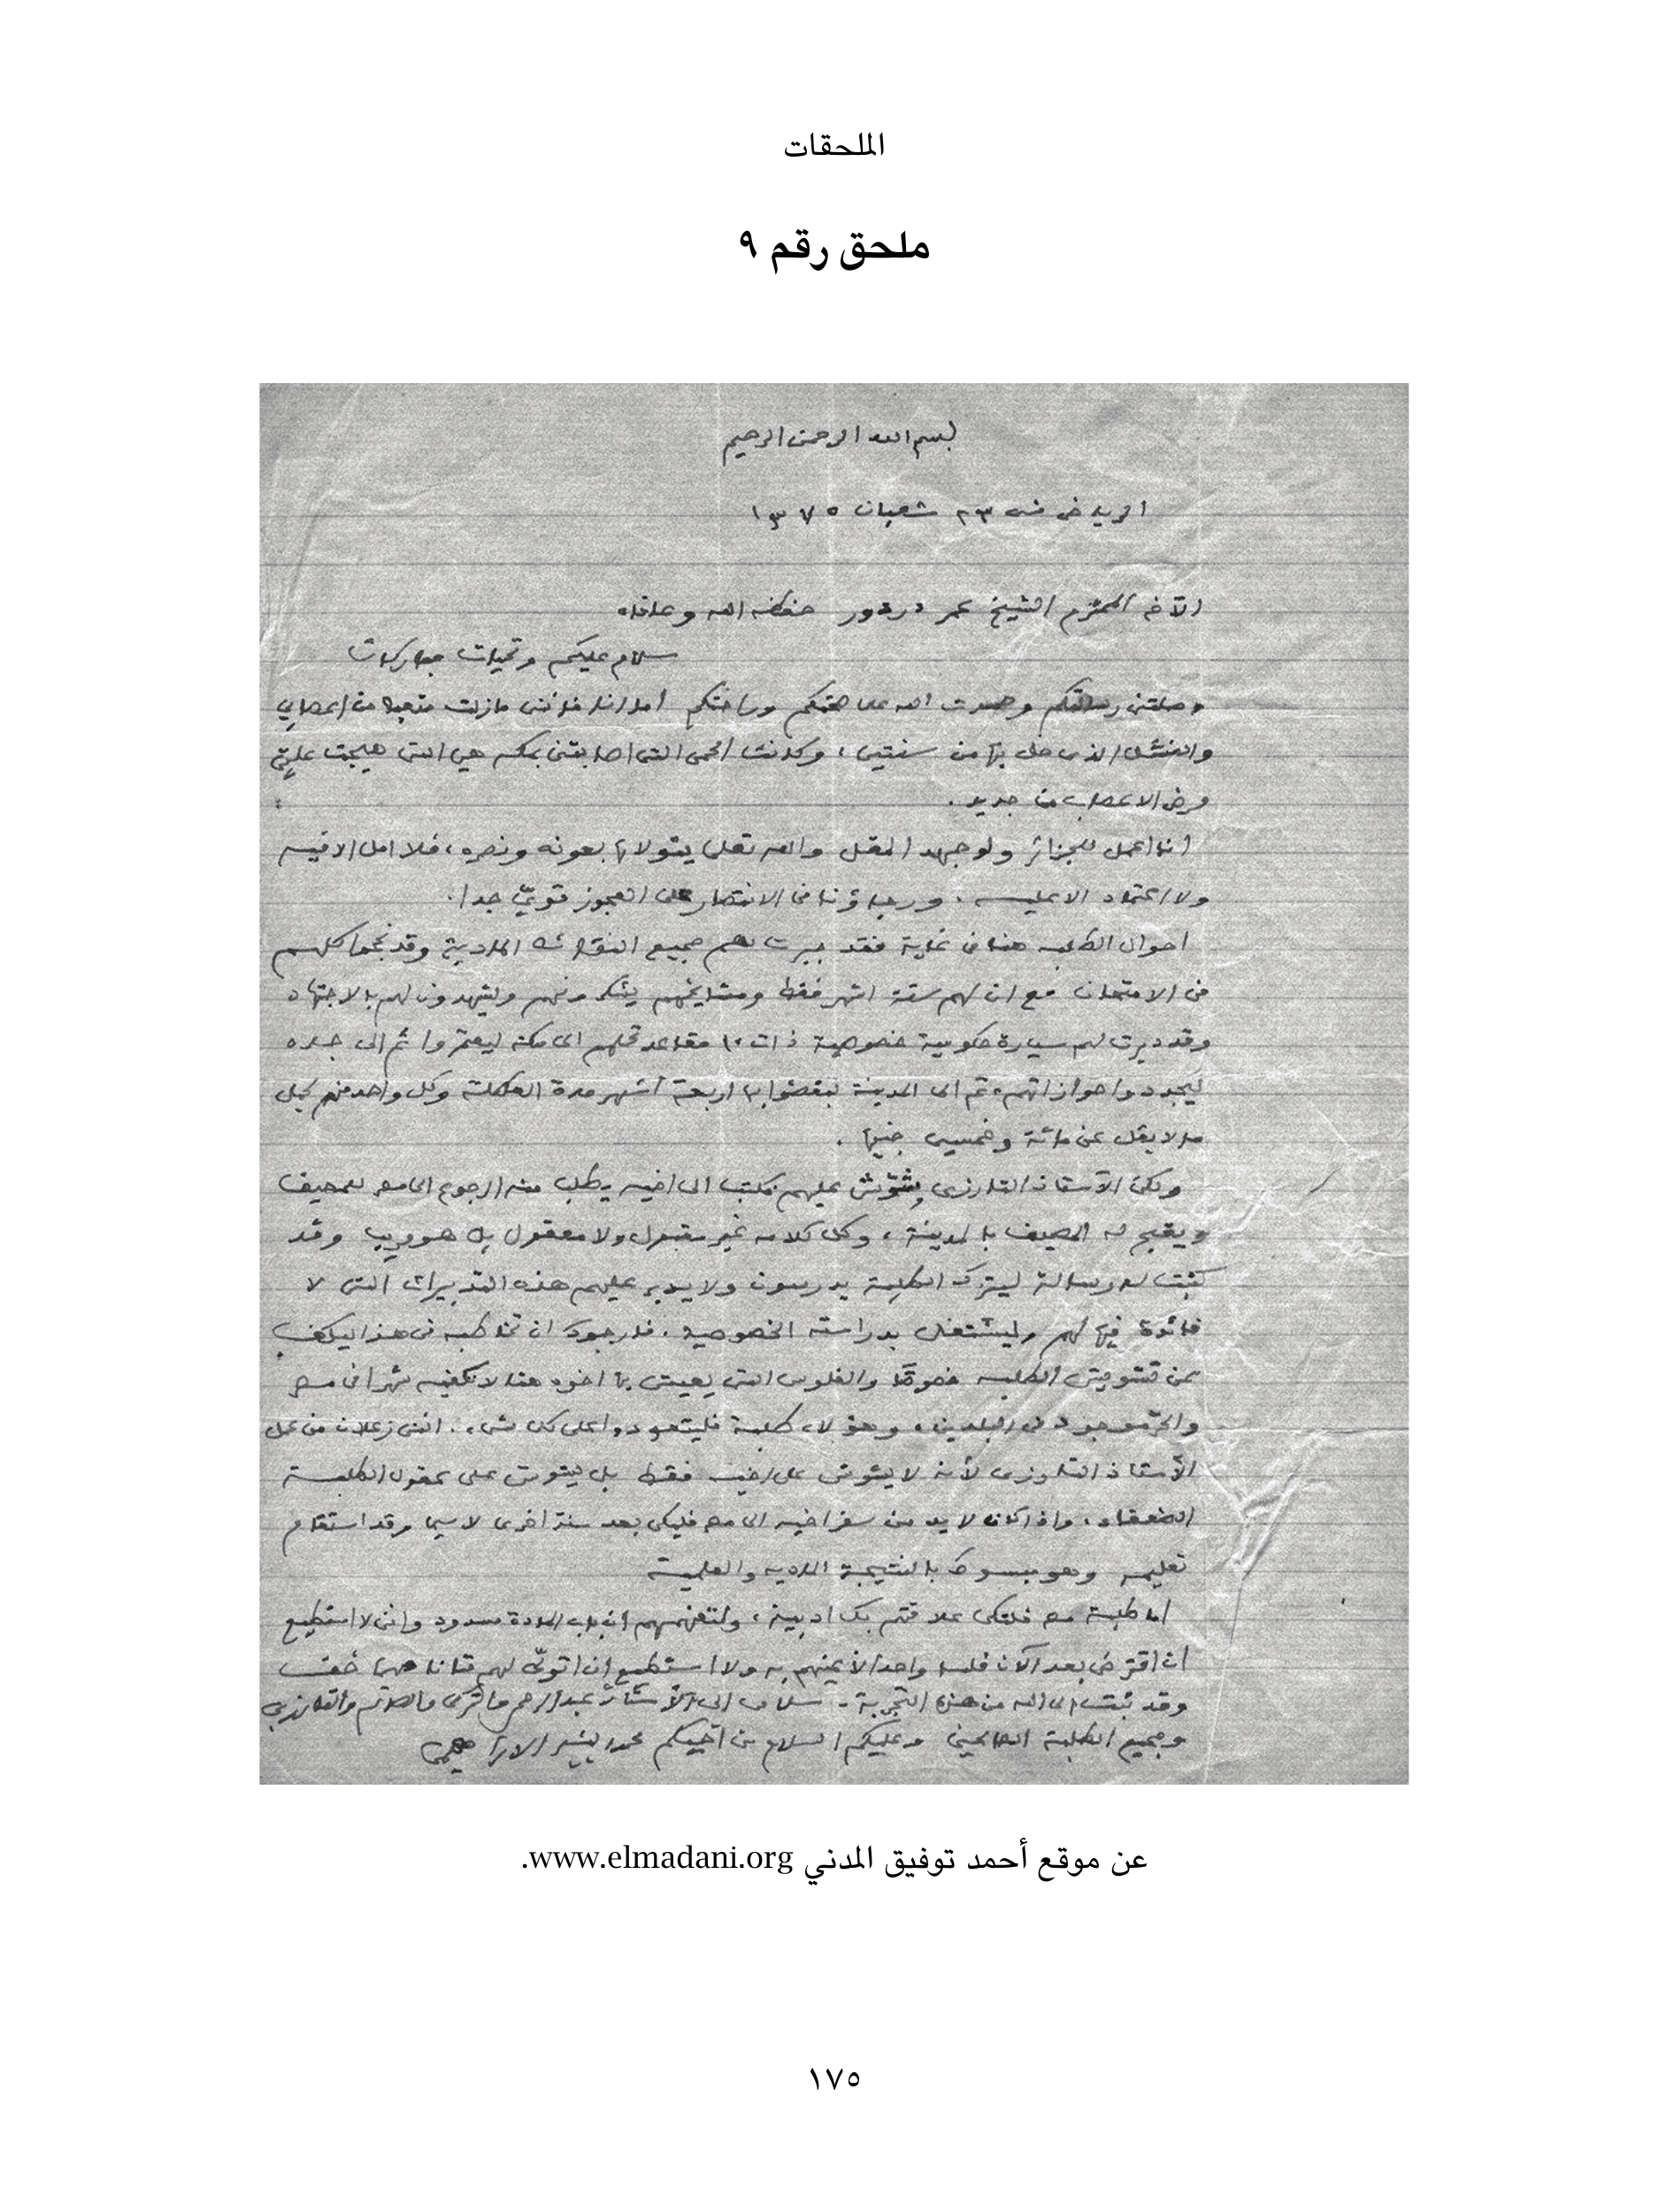 الملحقات
ملحق رقم ٩
بسم الله الرحمن الرحيم
الرياض في ٢٣ شعبان ١٣٧٥
الأخ المحترم الشيخ عمر دردور حفظه الله وعافاه
سلام عليكم وتحيات مباركات
وصلتني رسالتكم وحمدت الله على صحتكم وراحتكم أما أنا فإنني مازلت متعبا من أعصابي
والفشل الذي حل بها من سنتين، وكانت الحمى التي أصابتني بمكه هي التي هيجت عليّ
مرض الاعصاب من جديد.
أنا أعمل للجزائر ولو جهد المقل والله تعلى يتولاها بعونه ونصره، فلا امل الا فيه
ولا اعتماد الا عليه. ورجاؤنا في الانتصار على العجوز قويّ جدا.
احوال الطلبه هنا في غاية فقد دبرت لهم جميع النقائص المادية وقد نجحوا كلهم
في الامتحان مع ان لهم ستة اشهر فقط ومشايخهم يشكرونهم ويشهدون لهم بالاجتهاد
وقد دبرت لهم سيارة حكومية خصوصية ذات ١٠ مقاعد تحملهم الى مكة ليعتمروا ثم الى جده
ليجددوا جوازاتهم، ثم الى المدينة ليقضوا بها اربعة أشهر مدة العطلة وكل واحد منهم يحمل
ما لا يقل عن مائة وخمسين جنيها.
ولكن الأستاذ التارزي يشوّش عليهم بكتب الى اخيه يطلب منه الرجوع الى مصر للمصيف
ويقبح له المصيف بالمدينة، وكل كلامه غير مقبول ولا معقول بل هو مريب وقد
كتبت له رسالة ليترك الطلبة يدرسون ولا يدبر عليهم هذه التدبيرات التي لا
فائدة فيها لهم وليشتغل بدراسته الخصوصية. فارجوك ان تخاطبه في هذا ليكف
عن تشويش الطلبه خصوصًا والفلوس التي يعيش بها اخوه هنا لا تكفيه شهرا في مصر
والحرّ موجود في البلدين، وهؤلاء طلبة فليتعودوا على كل شيء. انني زعلان من عمل
الأستاذ التارزي لأنه لا يشوش على اخيه فقط بل يشوش على عقول الطلبة
الضعفاء. واذا كان لا بد من سفر اخيه الى مصر فليكن بعد سنة اخرى لا سيما وقد استقام
تعليمه وهو مبسوط بالنتيجة المادية والعلمية
اما طلبة مصر فلتكن علاقتهم بك ادبية، ولتفهمهم ان باب المادة مسدود وانني لا استطيع
ان اقترض بعد الآن فلسا واحدا لأعينهم به ولا استطيع ان اتولى لهم مهما خف
وقد تبت الى الله من هذه التجربة. سلامي الى الأستاذ عبد الرحمن والتركي والصائم والتارزي
وجميع الطلبة الصالحين وعليكم السلام من أخيكم محمد البشير الابراهيمي
عن موقع أحمد توفيق المدني www.elmadani.org.
١٧٥